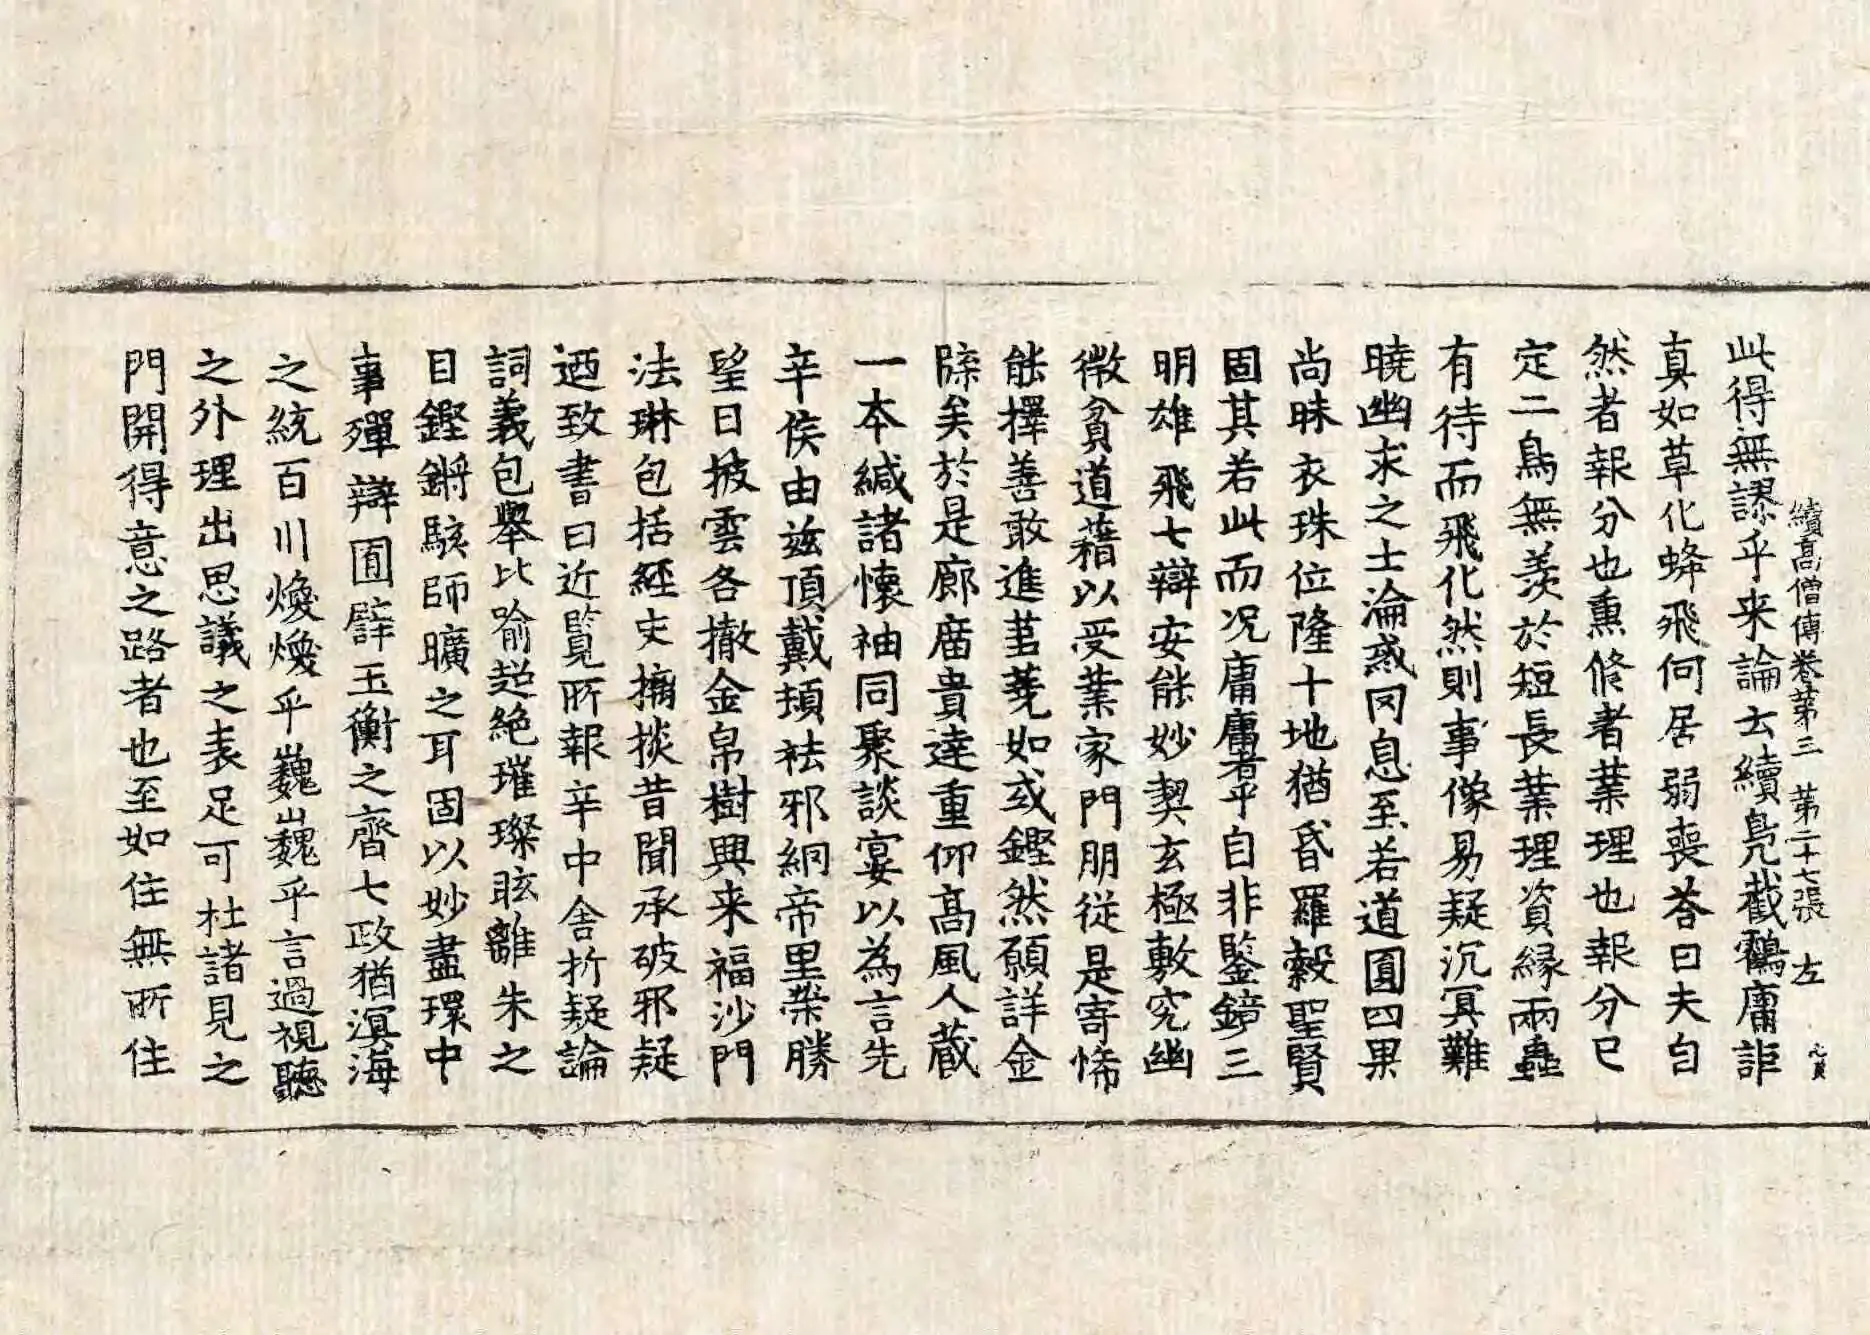 續高僧傳卷第三　第二十七張　左
此得無謬乎来論云續鳧截鶴庸詎
真如草化蜂飛何居弱喪荅曰夫自
然者報分也熏修者業理也報分已
定二鳥無羡於短長業理資縁兩蟲
有待而飛化然則事像易疑沉冥難
曉幽求之士淪惑罔息至若道圓四果
尚昧衣珠位隆十地猶昏羅縠聖賢
固其若此而况庸庸者乎自非鑒鏡三
明雄飛七辯安能妙契玄極敷究幽
微貧道藉以受業家門朋從是寄悕
能擇善敢進蒭蕘如或鏗然願詳金
牒矣於是廊庿貴達重仰高風人藏
一本緘諸懷袖同聚談宴以為言先
辛侯由兹頂戴頓袪邪網帝里榮勝
望日披雲各撤金帛樹興来福沙門
法琳包括經史摛掞昔聞承破邪疑
迺致書曰近覧所報辛中舍折疑論
詞義包舉比喻超絶璀璨眩離朱之
目鏗鏘駭師曠之耳固以妙盡環中
事殫辯囿譬玉衡之齊七政猶溟海
之統百川煥煥乎巍巍乎言過視聽
之外理出思議之表足可杜諸見之
門開得意之路者也至如住無所住